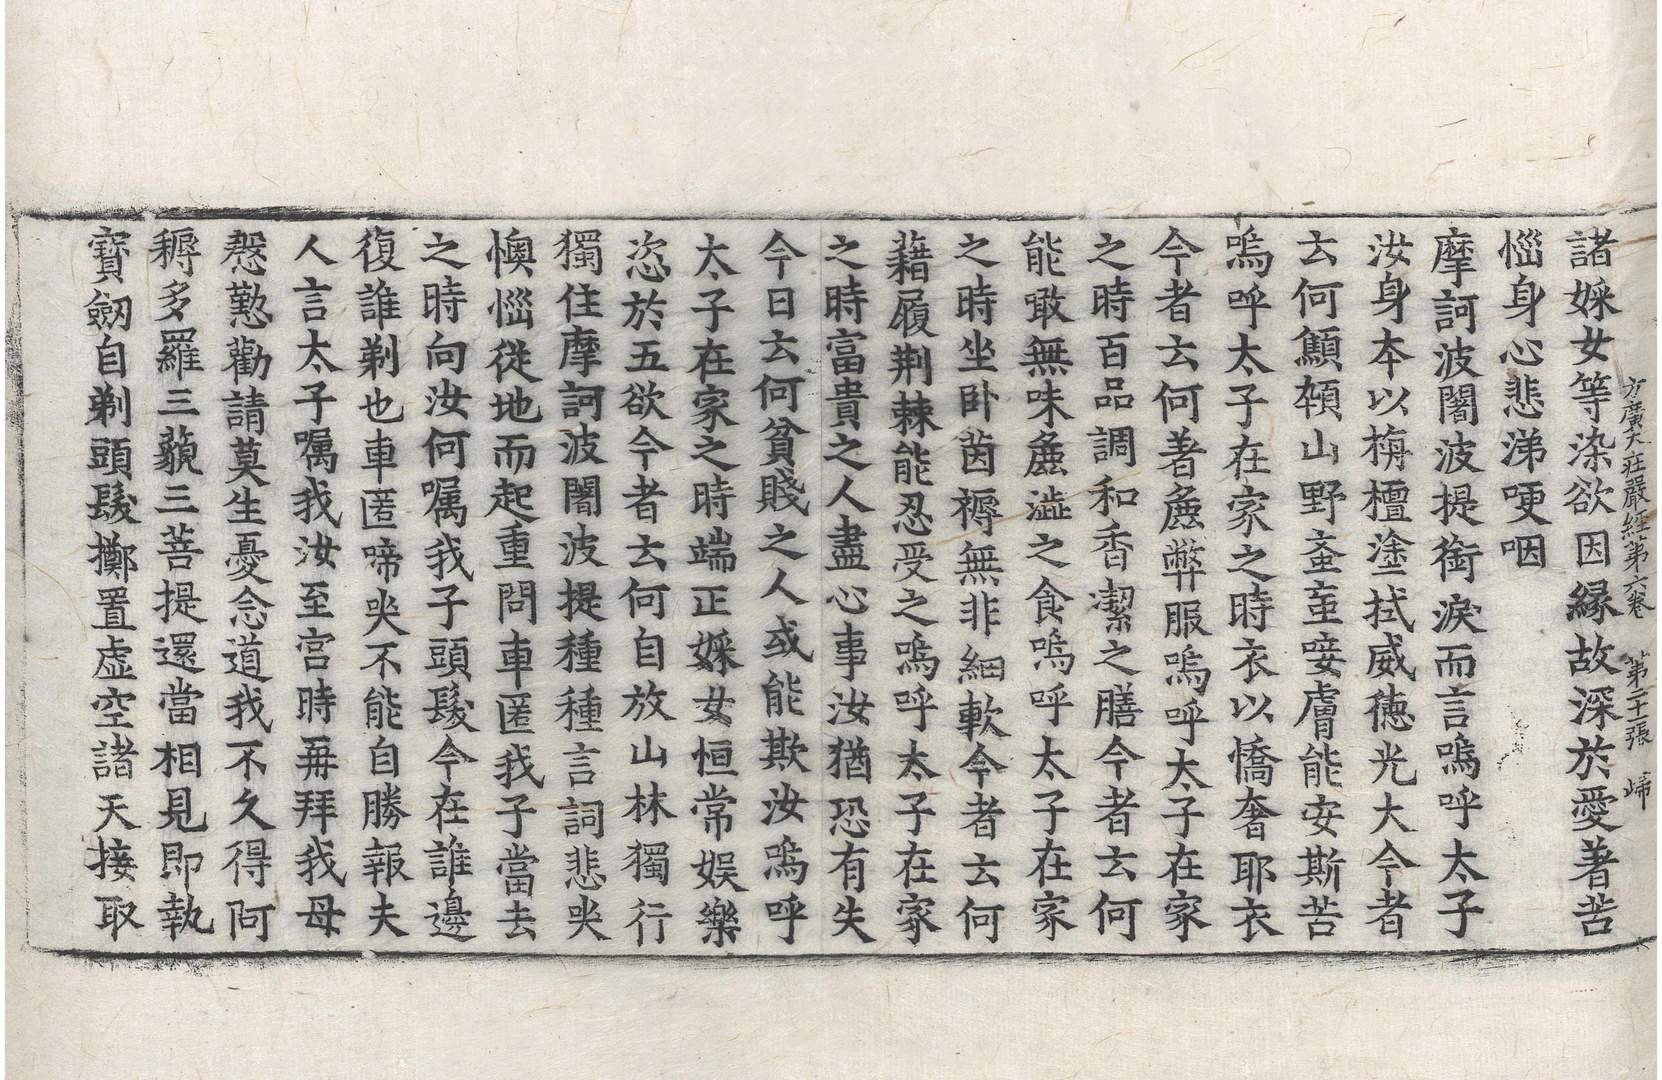 方廣大莊嚴經第六卷 第二十張 歸
諸婇女等染欲因縁故深於愛著苦
惱身心悲涕哽咽
摩訶波闍波提銜淚而言嗚呼太子
汝身本以栴檀塗拭威德光大今者
云何顯頓山野蚉䖟唼膚能安斯苦
嗚呼太子在家之時衣以憍奢耶衣
今者云何著麁弊服嗚呼太子在家
之時百品調和香潔之膳今者云何
能噉無味麁澁之食嗚呼太子在家
之時坐卧茵褥無非細軟今者云何
藉履荆棘能忍受之嗚呼太子在家
之時富貴之人盡心事汝猶恐有失
今日云何貧賤之人或能欺汝嗚呼
太子在家之時端正婇女恒常娛樂
恣於五欲今者云何自放山林獨行
獨住摩訶波闍波提種種言詞悲哭
懊惱從地而起重問車匿我子當去
之時向汝何囑我子頭髮今在誰邊
復誰剃也車匿啼哭不能自勝報夫
人言太子囑我汝至宮時再拜我母
慇懃勸請莫生憂念道我不久得阿
耨多羅三藐三菩提還當相見即執
寶劒自剃頭髮擲置虛空諸天接取